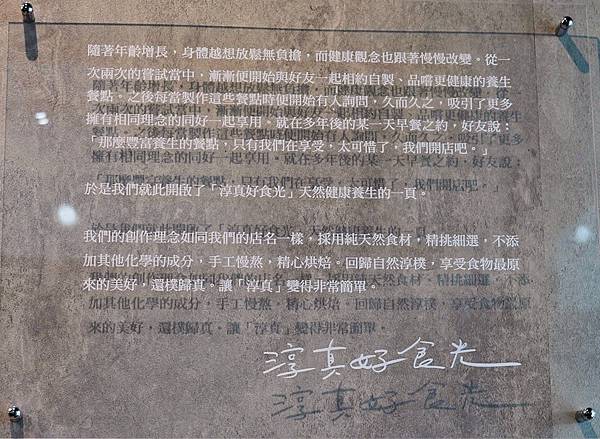 隨著年齡增長，身體越想放鬆無負擔，而健康觀念也跟著慢慢改變。從一
次兩次的嘗試當中，漸漸便開始與好友一起相約自製、品嚐更健康的養生
餐點。之後每當製作這些餐點時便開始有人詢問，久而久之，吸引了更多
擁有相同理念的同好一起享用。就在多年後的某一天早餐之約，好友說：
「那麼豐富養生的餐點，只有我們在享受，太可惜了，我們開店吧。」
於是我們就此開啟了「淳真好食光」天然健康養生的一頁。
我們的創作理念如同我們的店名一樣，採用純天然食材，精挑細選，不添
加其他化學的成分，手工慢熬，精心烘焙。回歸自然淳樸，享受食物最原
來的美好，還樸歸真。讓「淳真」變得非常簡單。
淳真好食光